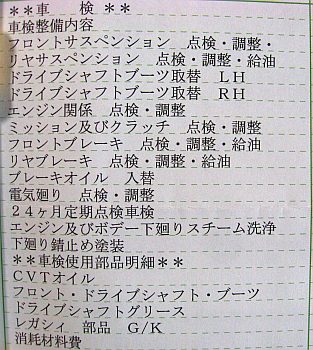 ＊＊車　　検　＊＊
車検整備内容
フロントサスペンション　点検・調整・
リヤサスペンション　点検・調整・給油
ドライブシャフトブーツ取替　ＬＨ
ドライブシャフトブーツ取替　ＲＨ
エンジン関係　点検・調整
ミッション及びクラッチ　点検・調整
フロントブレーキ　点検・調整・給油
リヤブレーキ　点検・調整・給油
ブレーキオイル　入替
電気廻り　点検・調整
２４ヶ月定期点検車検
エンジン及びボデー下廻りスチーム洗浄
下廻り錆止め塗装
＊＊車検使用部品明細＊＊
ＣＶＴオイル
フロント・ドライブシャフト・ブーツ
ドライブシャフトグリース
レガシィ　部品　Ｇ/Ｋ
消耗材料費